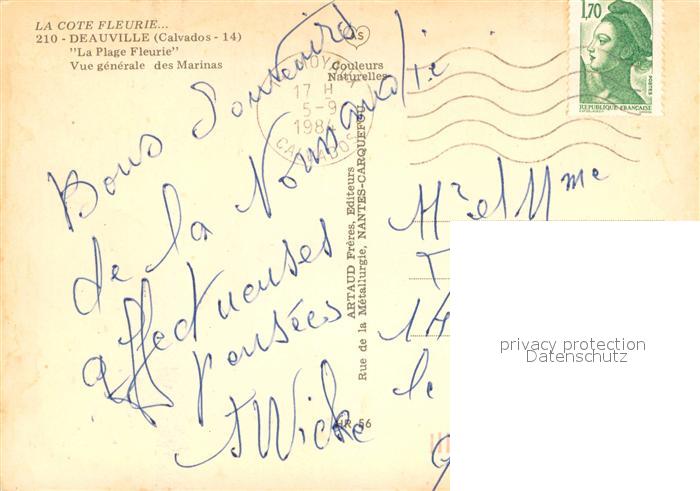 LA COTE FLEURIE...
210 - DEAUVILLE (Calvados - 14)
"La Plage Fleurie"
Vue générale des Marinas
Couleurs
Naturelles
17 H
5-9
1984
CALVADOS
1,70
POSTES
REPUBLIQUE FRANÇAISE
Bons Souvenirs
de la Normandie
affectueuses
pensées
Wicke
ARTAUD Frères, Editeurs
Rue de la Métallurgie, NANTES-CARQUEFOU
56
Mr et Mme
le
privacy protection
Datenschutz